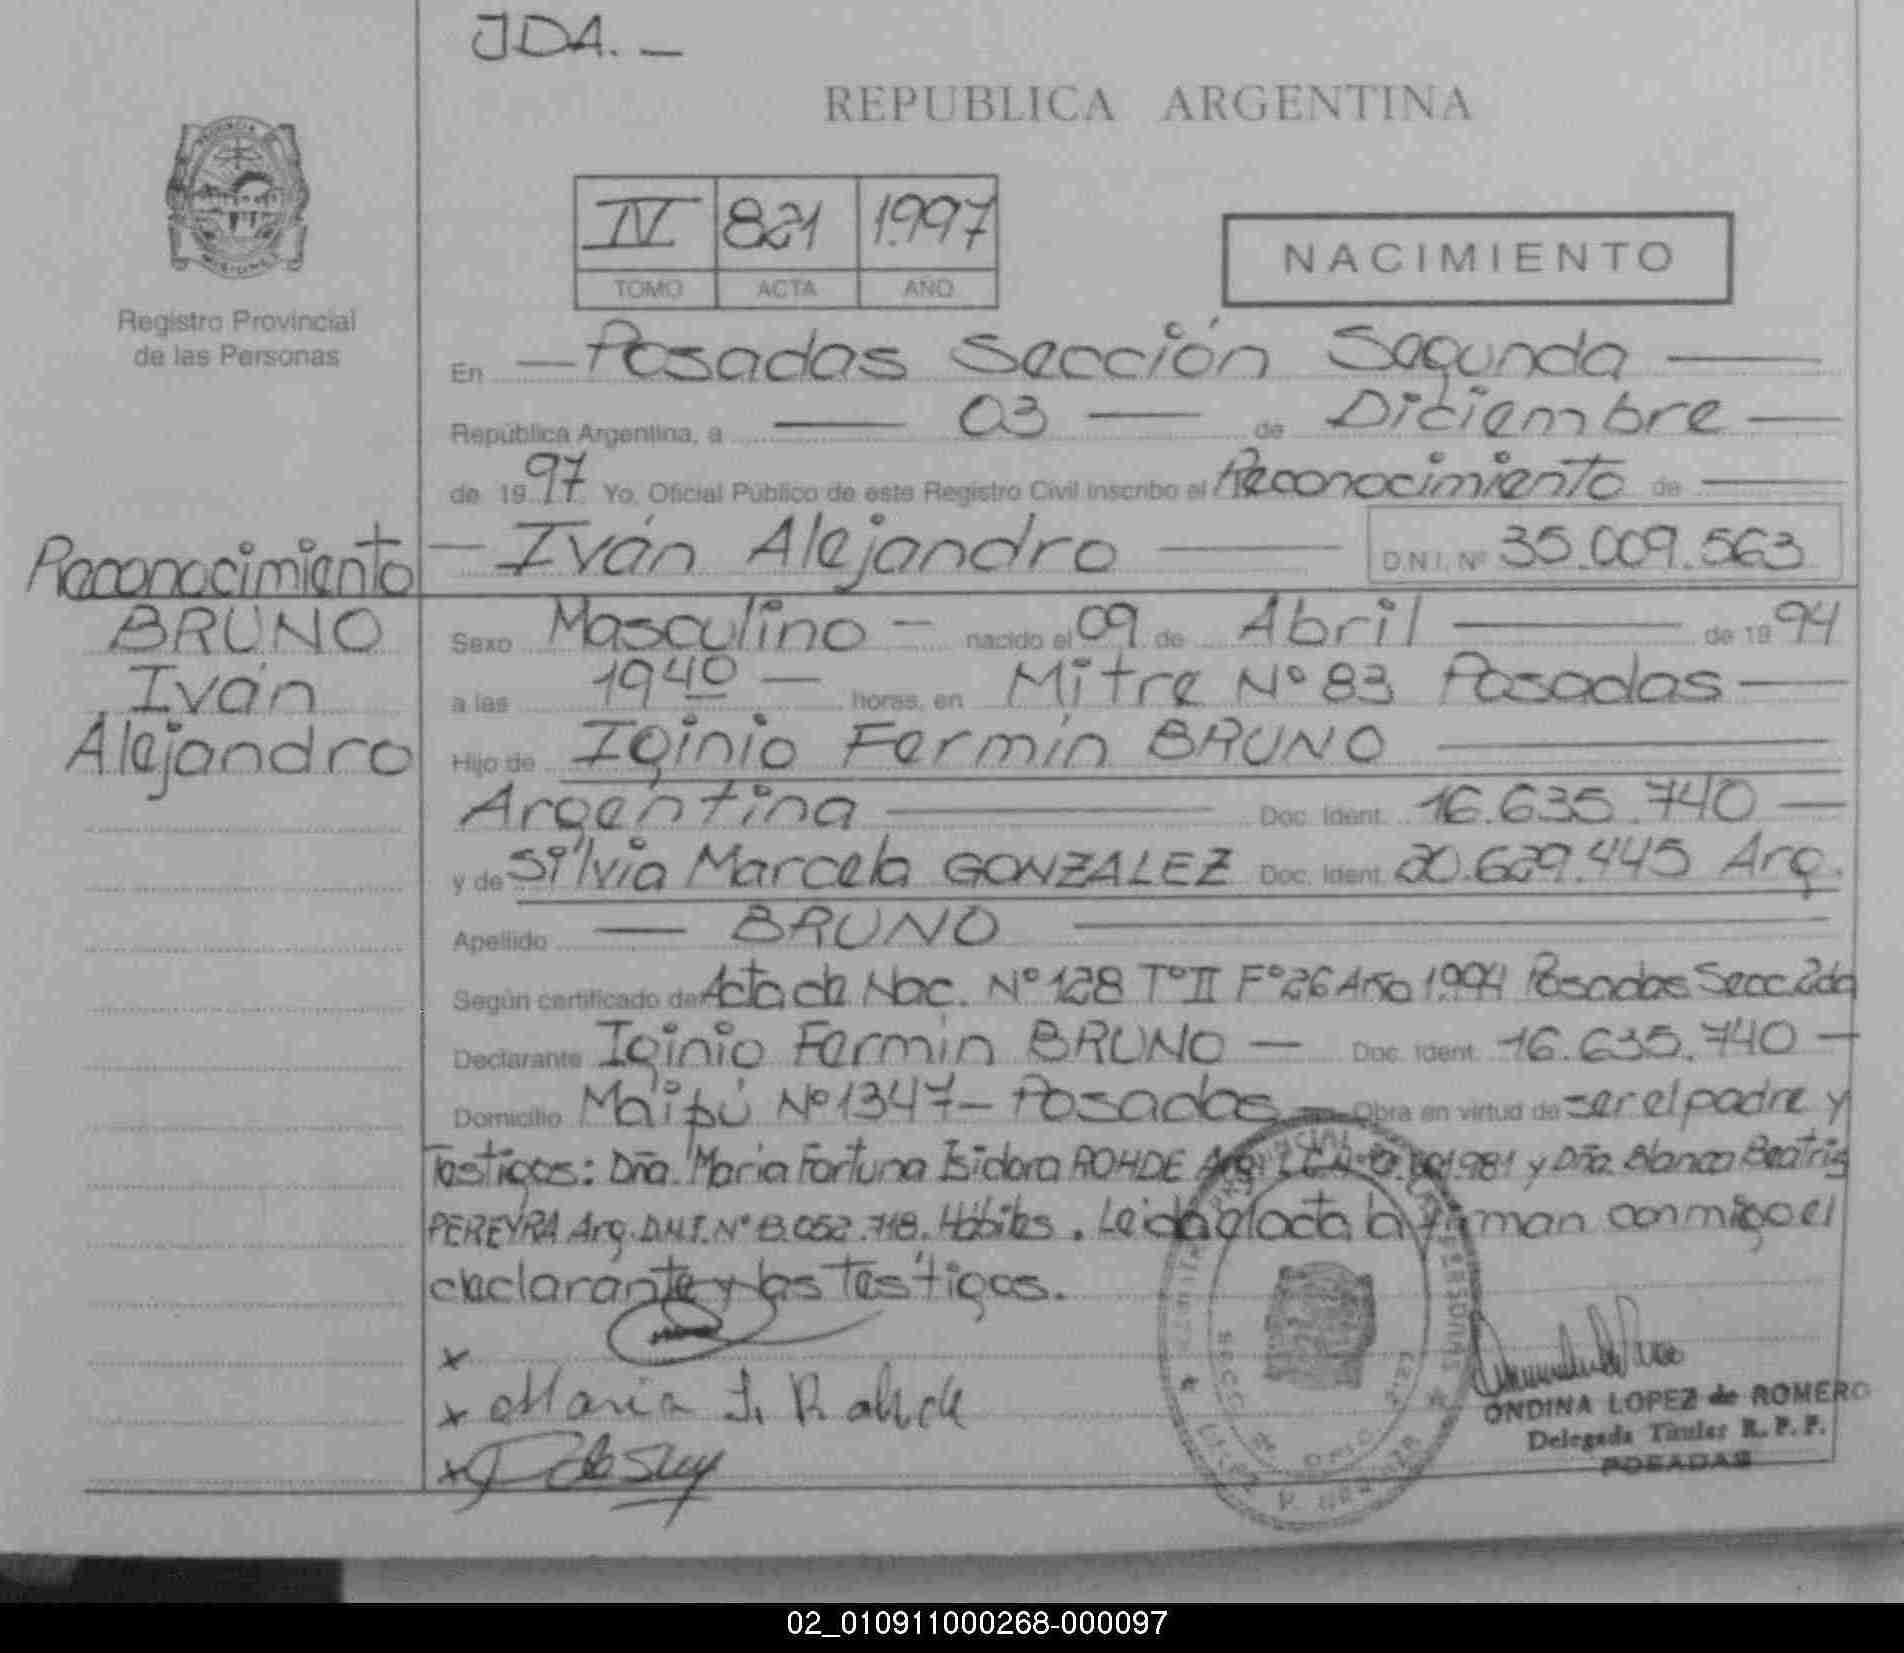 JDA. _
REPUBLICA ARGENTINA
IV 821 1.997
TOMO ACTA AÑO
NACIMIENTO
Registro Provincial
de las Personas
En — Posadas Sección Segunda —
República Argentina, a — 03 — de Diciembre —
de 19 97 Yo, Oficial Público de este Registro Civil inscribo el Reconocimiento de —
— Iván Alejandro — D.N.I. Nº 35.009.563
Reconocimiento
BRUNO
Iván
Alejandro
Sexo Masculino — nacido el 09 de Abril — de 19 94
a las 19 40 — horas, en Mitre Nº 83 Posadas —
Hijo de Iginio Fermín BRUNO —
Argentina — Doc. Ident. 16.635.740 —
y de Silvia Marcela GONZALEZ Doc. Ident. 20.629.445 Arg.
Apellido — BRUNO —
Según certificado de Acta de Nac. Nº 128 Tº II Fº 26 Año 1.994 Posadas Secc. 2da
Declarante Iginio Fermín BRUNO — Doc. Ident. 16.635.740 —
Domicilio Maipú Nº 1347 — Posadas — Obra en virtud de ser el padre y
Testigos: Dña. Maria Fortuna Isidora ROHDE Arg. 981 y Dña. Blanca Beatriz
PEREYRA Arg. D.N.I. Nº 8.052.718. Hábiles. Leida el acta la firman conmigo el
declarante y los testigos.
x
x Maria I. Rohde
x
ONDINA LOPEZ de ROMERO
Delegada Titular R. P. P.
POSADAS
02_010911000268-000097